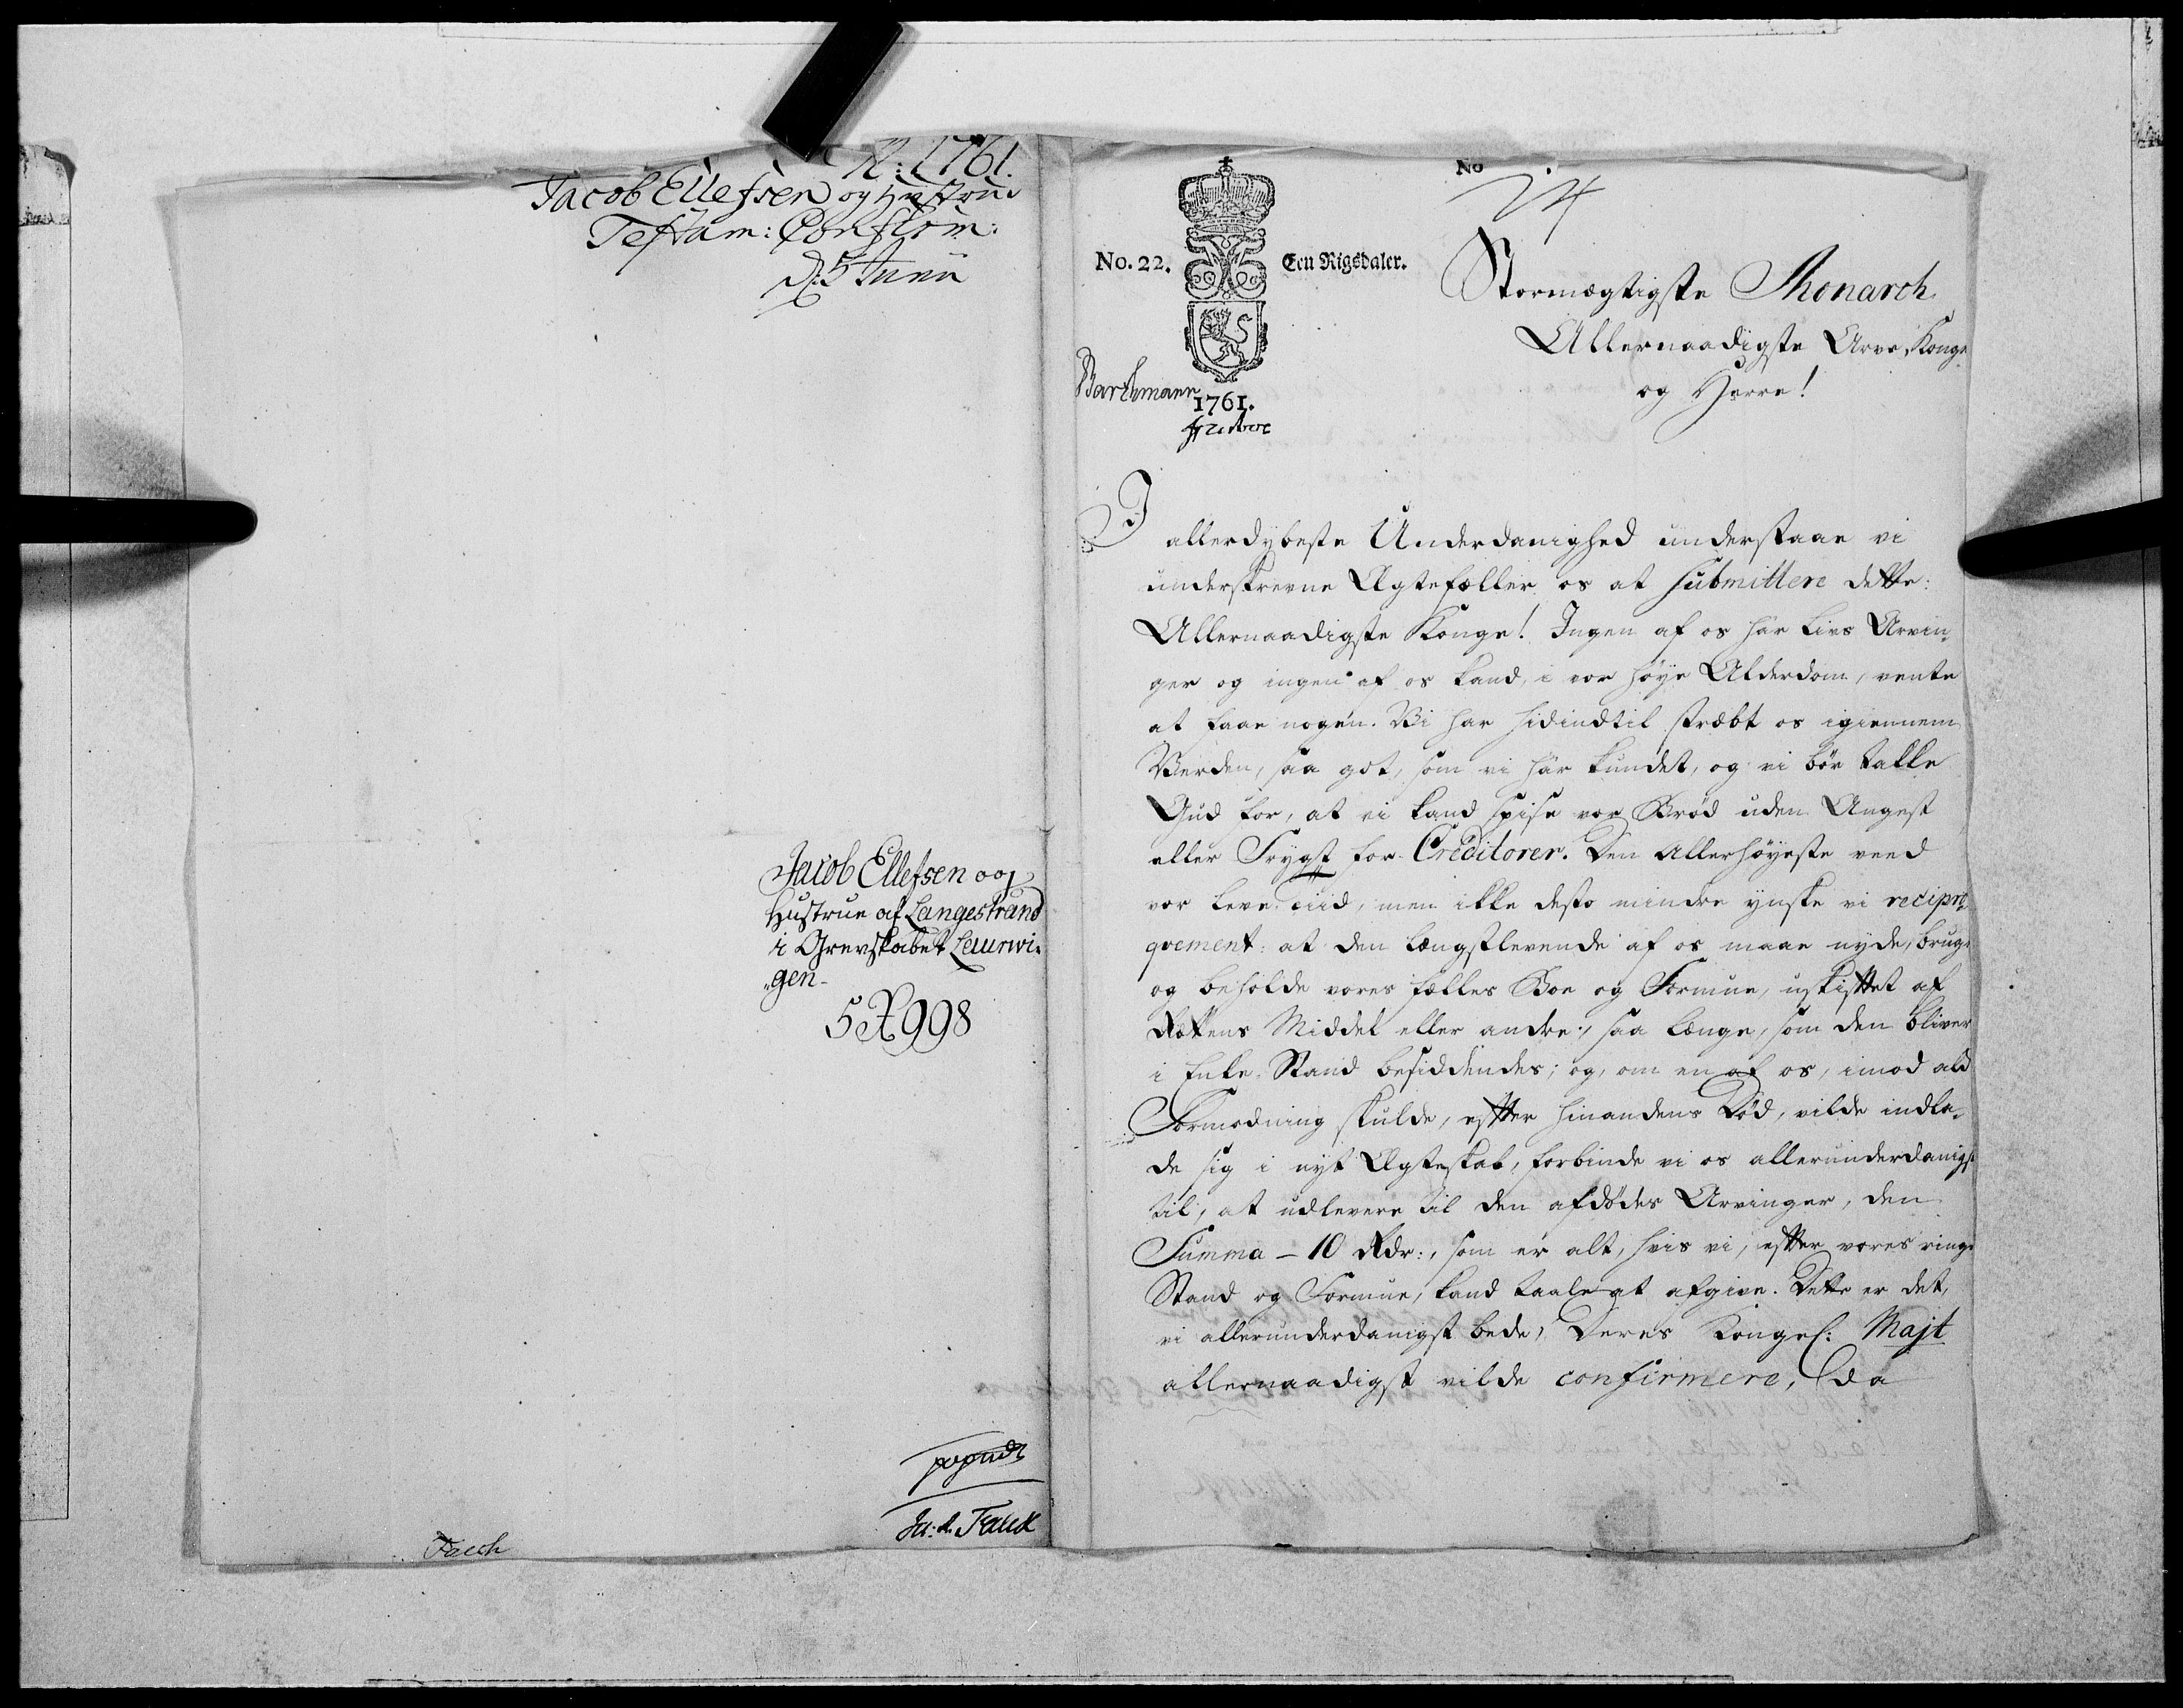 A: 1761.
Jacob Ellefsen og Hustrue
Testam: Confirm:
D: 5 Junii
Jacob Ellefsen og
Hustrue af Langestrand
i Grevskabet Laurwi-
gen-
5 A 998
Fasch
No
24
No. 22.
Een Rigsdaler.
1761.
Barthmann
Stormægtigste Monarch
Allernaadigste Arve Konge
og Herre!
I allerdybeste Underdanighed understaae vi
underskrevne Ægtefæller os at submittere dette:
Allernaadigste Konge! Ingen af os har Livs Arvin-
ger og ingen af os kand, i vor høye Alderdom, vente
at faae nogen. Vi har hidindtil stræbt os igiennem
Verden, saa got, som vi har kundet, og vi bør takke
Gud for, at vi kand spise vor Brød uden Angest
eller Frygt for Creditorer. Den Allerhøyeste veed
vor Leve-Tiid, men ikke desto mindre ynske vi recipro-
qvement: at den længstlevende af os maae nyde, bruge
og beholde vores fælles Boe og Formue, uskiftet af
Rettens Middel eller andre, saa længe, som den bliver
i Enke-Stand besiddendes; og, om en af os, imod ald
Formodning skulde, efter hinandens Død, vilde indla-
de sig i nyt Ægteskab, forbinde vi os allerunderdanigst
til, at udlevere til den afdødes Arvinger, den
Summa - 10 Rdr:, som er alt, hvis vi, efter vores ringe
Stand og Formue, kand taale at afgive. Dette er det,
vi allerunderdanigst bede, Deres Kongel: Majt
allernaadigst vilde confirmere, da